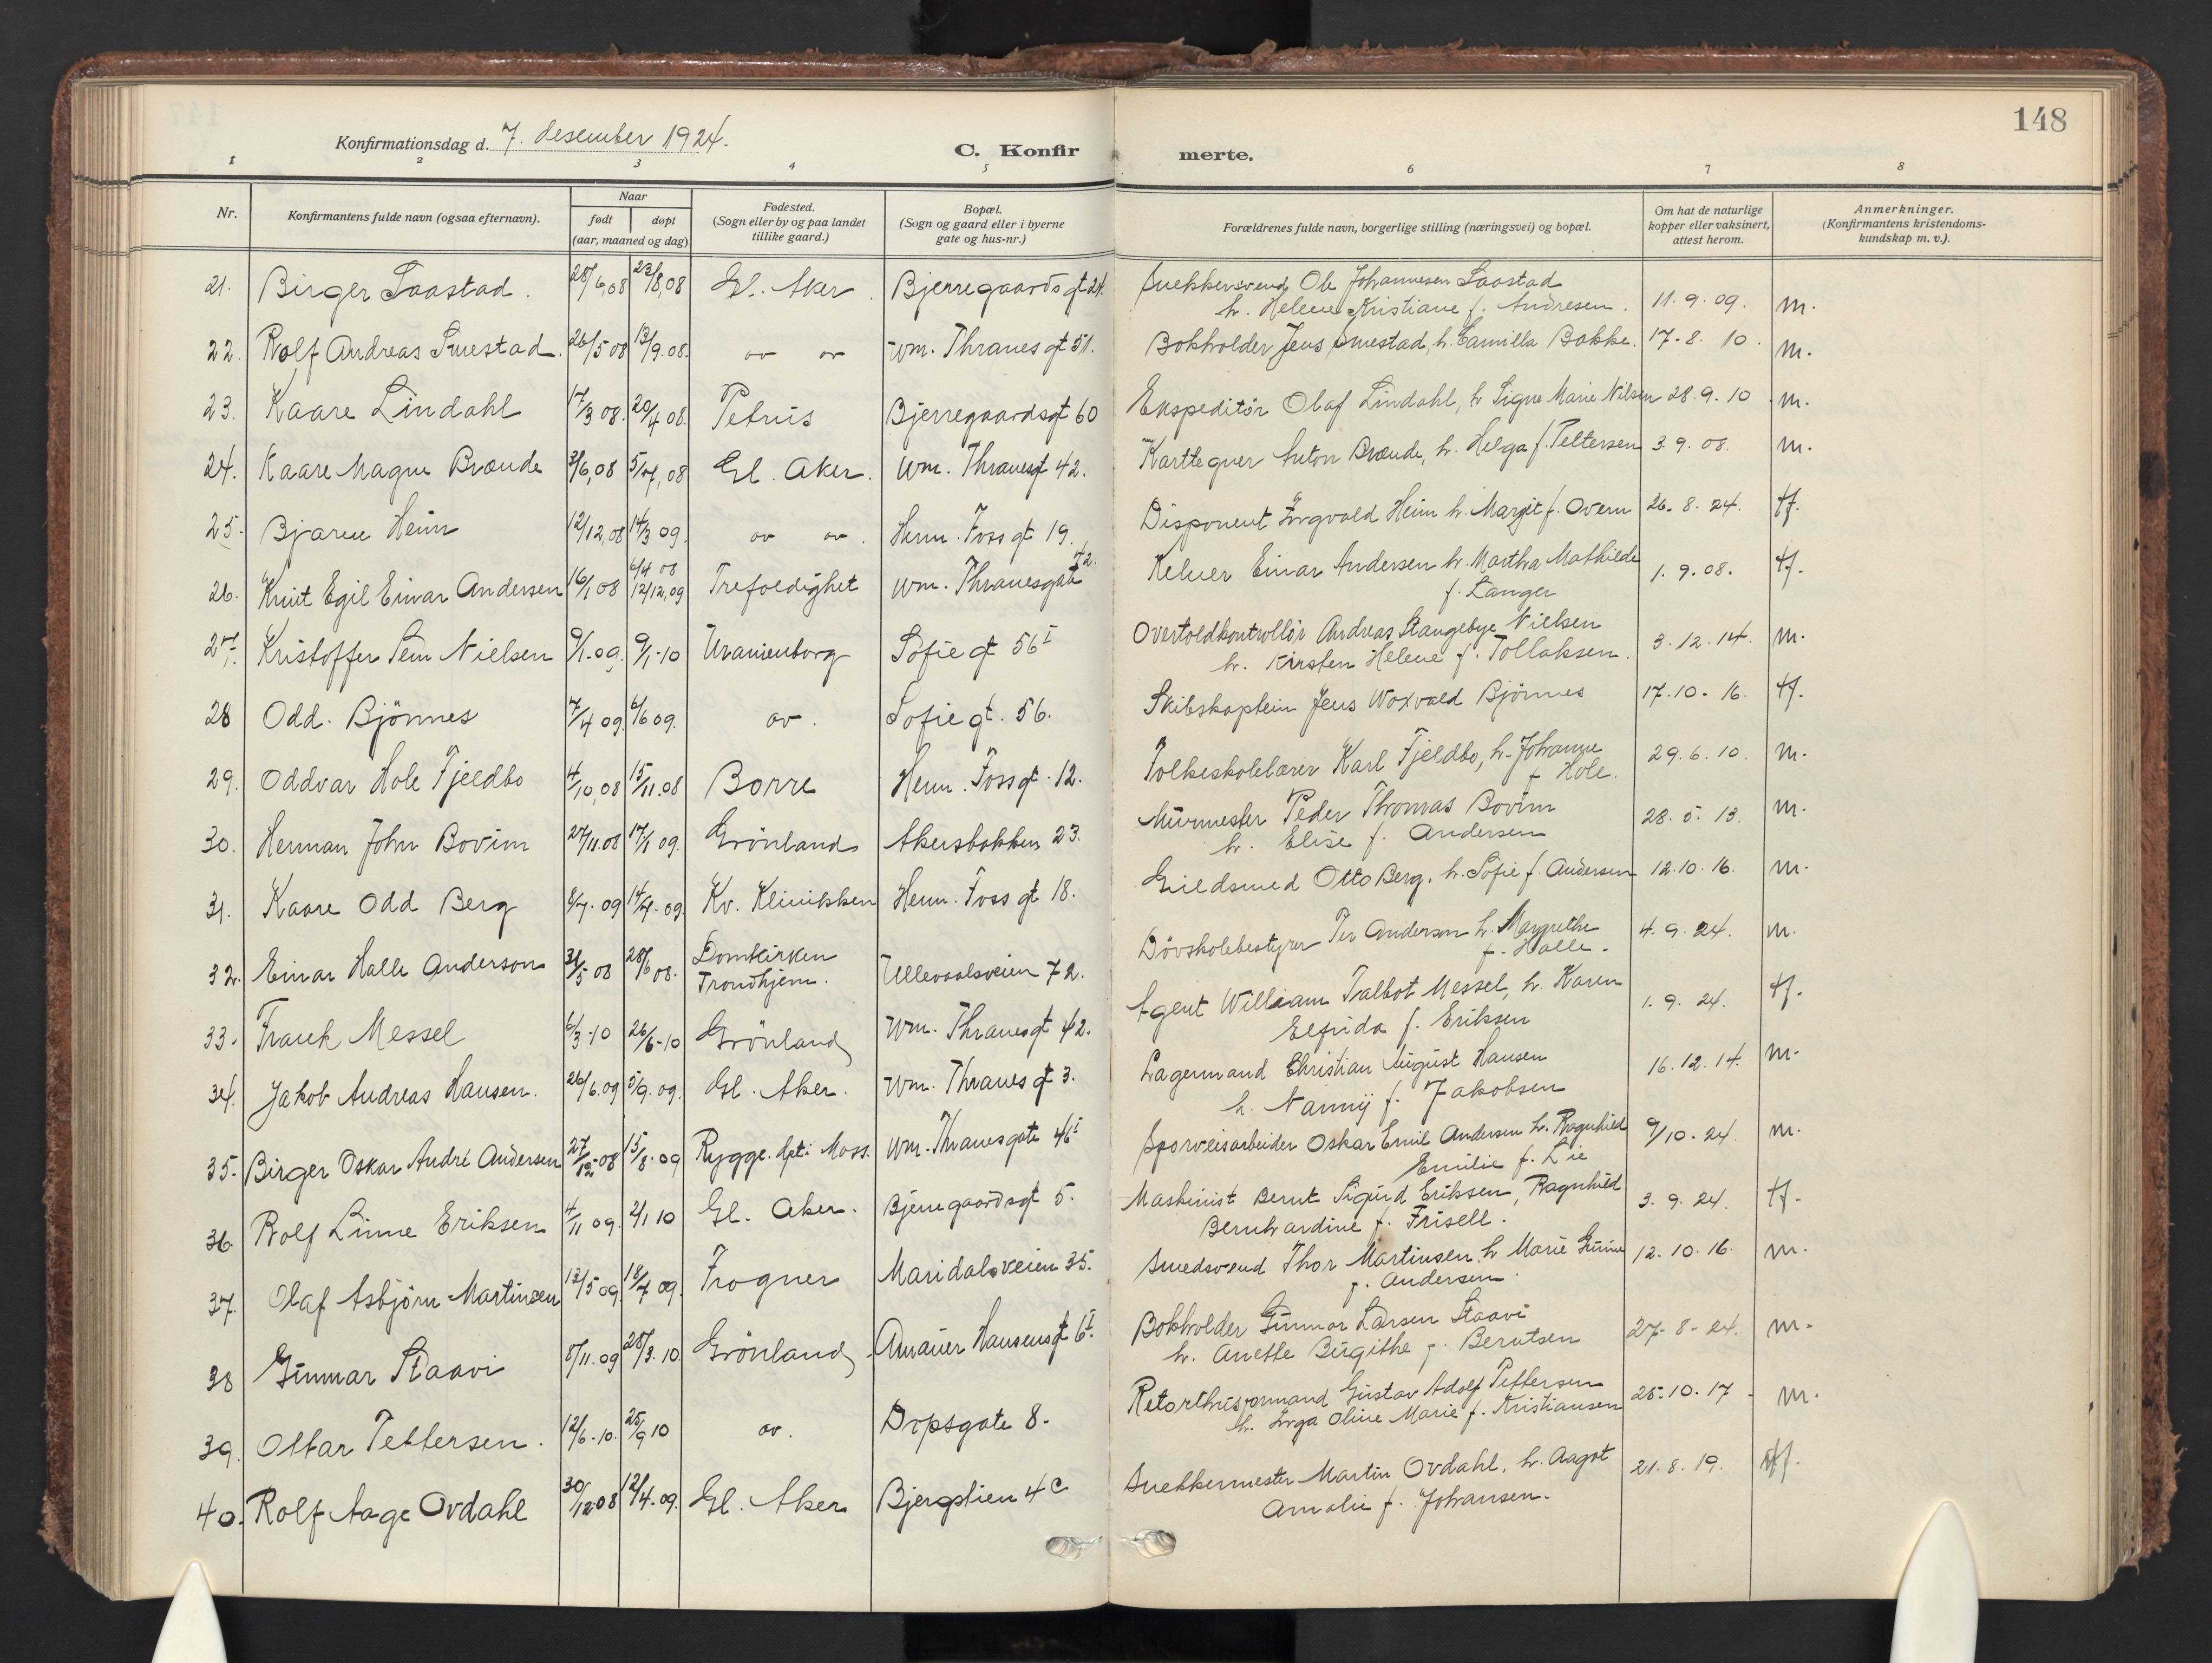 148
Konfirmationsdag d. 7. desember 1924.
C. Konfirmerte.
1 2 3 4 5 6 7 8
Nr.
Konfirmantens fulde navn (ogsaa efternavn).
Naar
født døpt
(aar, maaned og dag)
Fødested.
(Sogn eller by og paa landet
tillike gaard.)
Bopæl.
(Sogn og gaard eller i byerne
gate og hus-nr.)
Forældrenes fulde navn, borgerlige stilling (næringsvei) og bopæl.
Om hat de naturlige
kopper eller vaksinert,
attest herom.
Anmerkninger.
(Konfirmantens kristendoms-
kundskap m. v.).
21. Birger Saastad. 28/6,08 23/8,08 Gl. Aker. Bjerregaards gt 24. Snekkersvend Ole Johannesen Saastad 11.9.09. m.
h. Helene Kristiane f. Andresen.
22. Rolf Andreas Smestad. 26/5 08 13/9.08. " " Wm. Thranes gt 51. Bokholder Jens Smestad, h. Camilla Bakke. 17-8. 10. m.
23. Kaare Lindahl 17/3 08. 20/4 08. Petrus Bjerregaardsgt 60 Ekspeditör Olaf Lindahl, h Signe Marie Nilsen 28.9.10 m.
24. Kaare Magne Brænde 3/6,08 5/7,08 Gl. Aker. Wm. Thranesgt 42. Karttegner Anton Brænde, h. Helga f. Pettersen 3.9.08. m.
25. Bjarne Heim 12/12,08 14/3 09. " " Herm. Foss gt 19. Disponent Ingvald Heim h. Margit f. Overn 26-8.24. tf.
26. Knut Egil Einar Andersen 16/1 08 6/4 08 12/12,09 Trefoldighet Wm. Thranesgate 42. Kelner Einar Andersen h. Martha Mathilde 1.9.08. tf.
f. Langer
27. Kristoffer Sem Nielsen 9/1-09. 9/1-10 Uranienborg Sofie gt 56 I Overtoldkontrollör Andreas Stangebye Nielsen 3.12.14. m.
h. Kirsten Helene f. Tollaksen.
28 Odd. Bjönnes 7/4 09 6/6 09. " Sofie gt. 56. Skibskaptein Jens Woxvold Bjönnes 17.10-16. tf.
29. Oddvar Hole Fjeldbo 4/10,08 15/11.08 Borre Herm. Foss gt. 12. Folkeskolelærer Karl Fjeldbo, h. Johanne 29.6.10. m.
f Hole.
30. Herman John Bovim 27/11.08 17/1 09. Grönland Akersbakken 23. Murmester Peder Thomas Bovim 28.5.13. m.
h. Elise f. Andersen
31. Kaare Odd Berg 8/7-09 14/4-09 Kv. Klinikken Herm. Foss gt 18. Guldsmed Otto Berg. h. Sofie f. Andersen 12.10.16. m.
32. Einar Halle Anderson 31/5 08 28/6 08. Domkirken Trondhjem. Ullevaalsveien 72. Dövskolebestyrer Per Anderson h. Margrethe 4.9.24. m.
f. Halle.
33. Frank Messel 6/3-10 26/6-10 Grönland Wm. Thranesgt 42. Agent William Talbot Messel, h. Karen 1.9.24. tf.
Elfrida f. Eriksen
34. Jakob Andreas Hansen. 26/6.09 5/9.09. Gl. Aker. Wm. Thranes gt 3. Lagermand Christian August Hansen 16.12.14. m.
h. Nanny f. Jakobsen
35. Birger Oskar André Andersen 27/12-08 15/8-09 Rygge. dpt i Moss. Wm. Thranesgate 46 I Sporveisarbeider Oskar Emil Andersen h. Ragnhild 9/10-24. m.
Emilie f. Lie
36. Rolf Linne Eriksen 4/11 09. 2/1 10 Gl. Aker. Bjerregaardsgt 5. Maskinist Bernt Sigurd Eriksen, Ragnhild 3.9.24. tf.
Bernhardine f. Frisell.
37. Olaf Asbjörn Martinsen 13/5 09. 18/7 09. Frogner Maridalsveien 35. Smedsvend Thor Martinsen, h Marie Gunine 12.10.16. m.
f. Andersen.
38 Gunnar Staavi 8/11.09 28/3.10 Grönland Amaur Hansensgt 6 I. Bokholder Gunnar Larsen Staavi 27-8-24. m.
h. Anette Birgithe f. Berntsen
39. Ottar Pettersen. 12/6-10. 25/9 10 " Dopsgate 8. Retorthusformand Gustav Adolf Pettersen 25.10.17. m.
h. Inga Oline Marie f. Kristiansen
40. Rolf Aage Ovdahl 30/12-08 12/4-09. Gl. Aker Bjergstien 4c Snekkermester Martin Ovdahl, h. Aagot 21.8.19. tf.
Amalie f. Johansen.